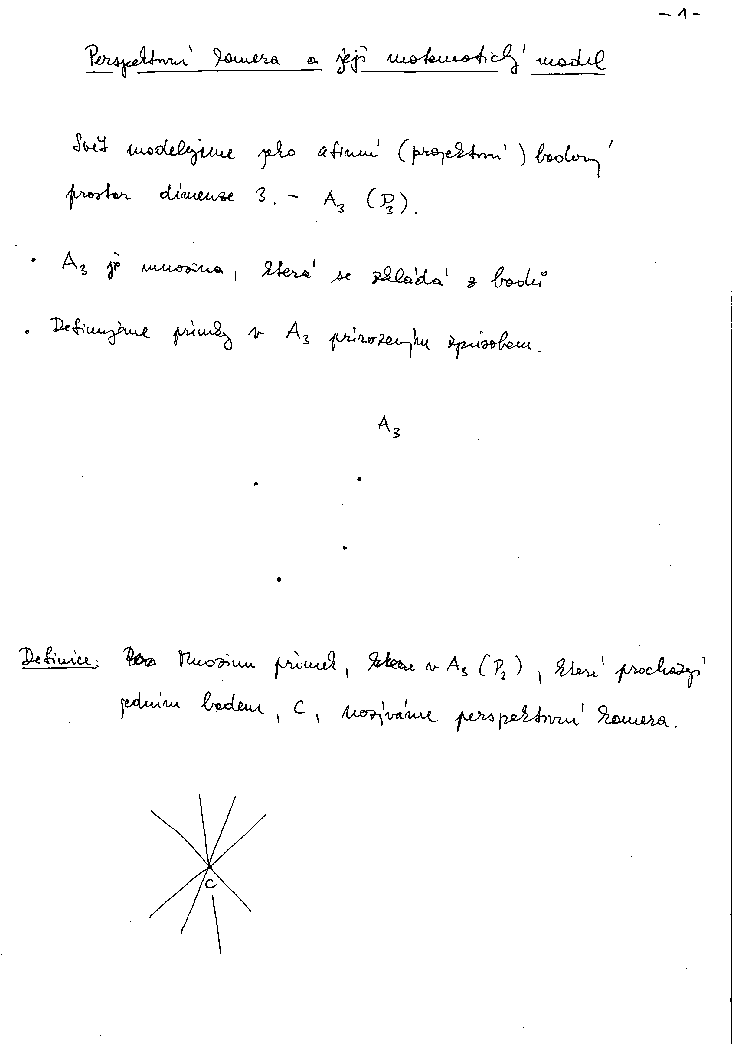 - 1 -
Perspektivní kamera a její matematický model
Svět modelujeme jako afinní (projektivní) bodový
prostor dimenze 3. - A₃ (P₃).
• A₃ je množina, která se skládá z bodů
• Definujeme přímky v A₃ přirozeným způsobem.
A₃
Definice: Množinu přímek, v A₃ (P₃), které procházejí
jedním bodem, C, nazýváme perspektivní kamera.
C